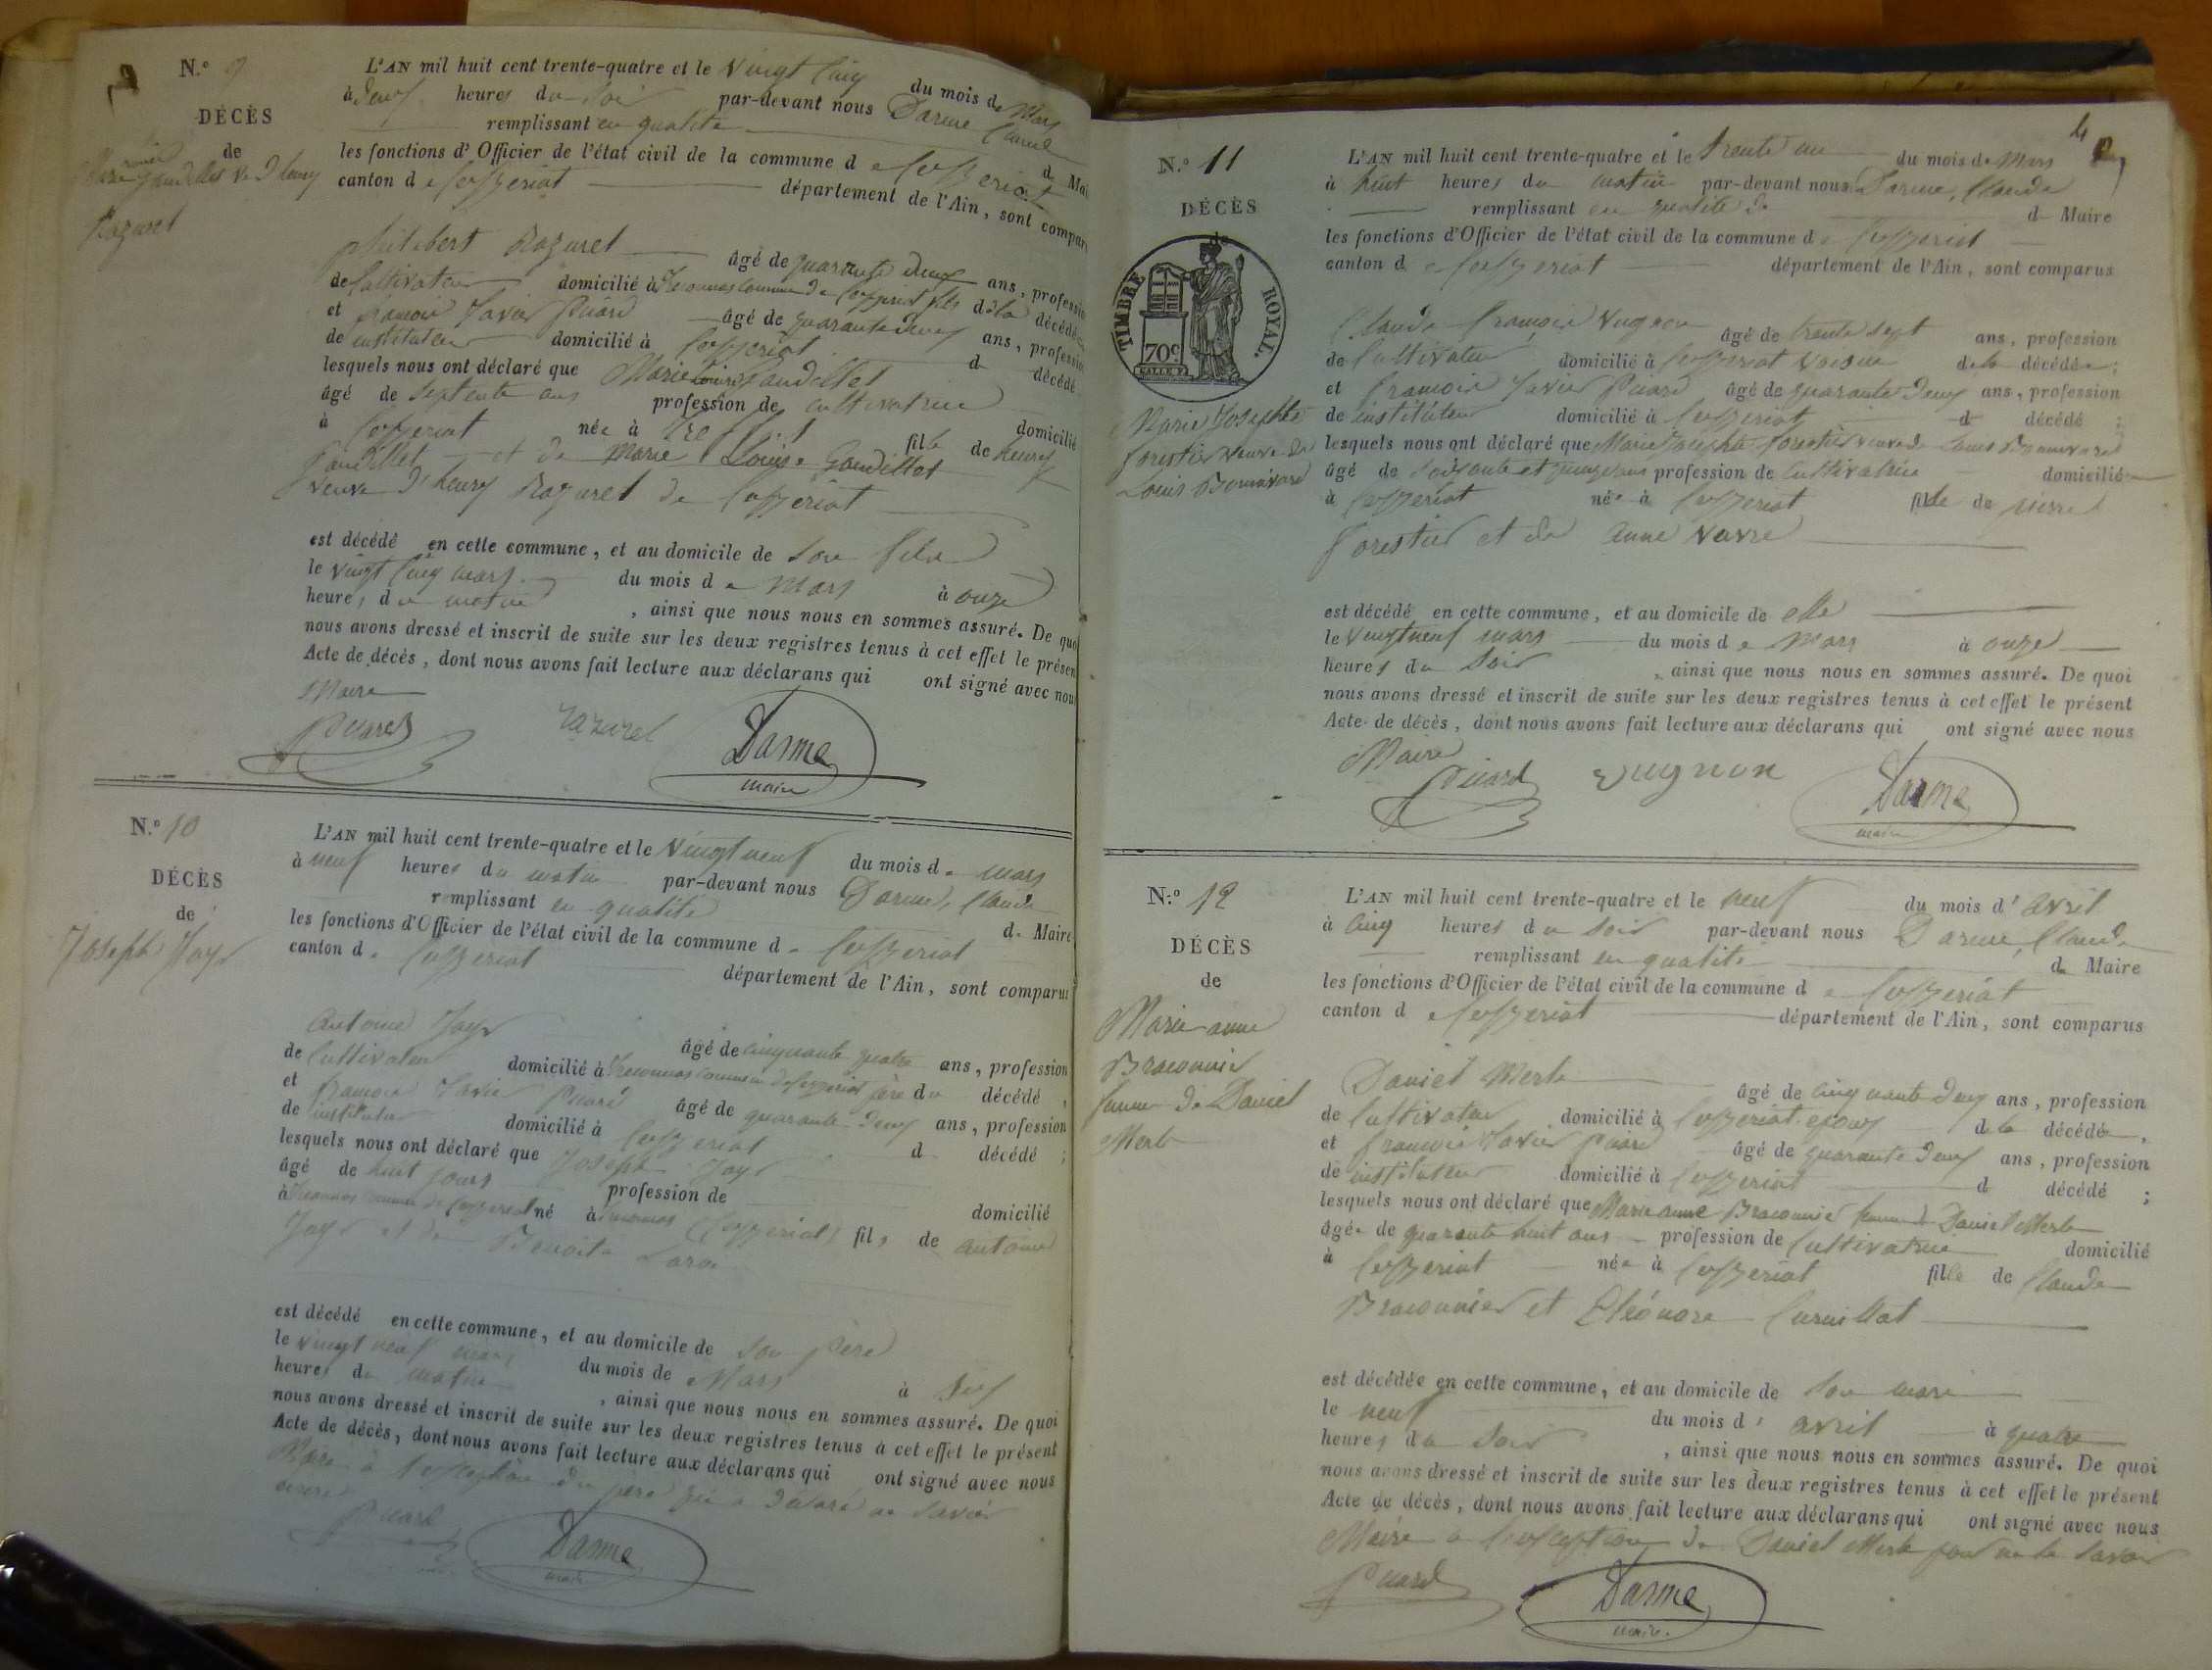 N.º 9
DÉCÈS
de
Razurel
L'AN mil huit cent trente-quatre et le vingt cinq du mois de Mars
à deux heures du soir par-devant nous Darme Claude
remplissant en qualité d Mai
les fonctions d'Officier de l'état civil de la commune de Ceyzeriat
canton de Ceyzeriat département de l'Ain, sont compar
philibert Razurel âgé de quarante deux ans, profession
de Cultivateur domicilié à commune de Ceyzeriat fils de la décédée
et françois Xavier Puard âgé de quarante deux ans, profession
de instituteur domicilié à Ceyzeriat d décédé
lesquels nous ont déclaré que Marie Louise Gaudillet
âgé de septente ans profession de cultivatrice domicilié
à Ceyzeriat née à fille de henry
Gaudillet et de Marie Louise Gaudillet
veuve d'henry Razurel de Ceyzeriat
est décédé en cette commune, et au domicile de son fils
le vingt cinq mars du mois de Mars à onze
heures du matin, ainsi que nous nous en sommes assuré. De quoi
nous avons dressé et inscrit de suite sur les deux registres tenus à cet effet le présent
Acte de décès, dont nous avons fait lecture aux déclarans qui ont signé avec nous
Maire
Puard Razurel Darme
maire
N.º 10
DÉCÈS
de
Joseph Jayr
L'AN mil huit cent trente-quatre et le vingt neuf du mois de mars
à neuf heures du matin par-devant nous Darme, Claude
remplissant en qualité de Maire
les fonctions d'Officier de l'état civil de la commune de Ceyzeriat
canton de Ceyzeriat département de l'Ain, sont comparus
Antoine Jayr âgé de cinquante quatre ans, profession
de Cultivateur domicilié à commune de Ceyzeriat père du décédé,
et françois Xavier Puard âgé de quarante deux ans, profession
de instituteur domicilié à Ceyzeriat d décédé;
lesquels nous ont déclaré que Joseph Jayr
âgé de huit jours profession de domicilié
à commune de Ceyzeriat né à (Ceyzeriat) fils de Antoine
Jayr et de Benoite
est décédé en cette commune, et au domicile de son père
le vingt neuf mars du mois de Mars à
heures du matin, ainsi que nous nous en sommes assuré. De quoi
nous avons dressé et inscrit de suite sur les deux registres tenus à cet effet le présent
Acte de décès, dont nous avons fait lecture aux déclarans qui ont signé avec nous
Maire à l'exception du père qui a déclaré ne savoir
Puard Darme
maire
N.º 11
DÉCÈS
de
TIMBRE ROYAL.
70c
Marie Josephte
forestier veuve de
Louis Bonnivard
L'AN mil huit cent trente-quatre et le trente un du mois de Mars
à huit heures du matin par-devant nous Darme, Claude
remplissant en qualité de d Maire
les fonctions d'Officier de l'état civil de la commune de Ceyzeriat
canton de Ceyzeriat département de l'Ain, sont comparus
Claude françois Vugnon âgé de trente sept ans, profession
de Cultivateur domicilié à Ceyzeriat voisin de la décédée;
et françois Xavier Puard âgé de quarante deux ans, profession
de instituteur domicilié à Ceyzeriat d décédé;
lesquels nous ont déclaré que Marie Josephte forestier veuve de Louis Bonnivard
âgé de soixante et quinze ans profession de Cultivatrice domiciliée
à Ceyzeriat née à Ceyzeriat fille de pierre
forestier et de anne
est décédé en cette commune, et au domicile de elle
le vingt neuf mars du mois de Mars à onze
heures du soir, ainsi que nous nous en sommes assuré. De quoi
nous avons dressé et inscrit de suite sur les deux registres tenus à cet effet le présent
Acte de décès, dont nous avons fait lecture aux déclarans qui ont signé avec nous
Maire
Puard vugnon Darme
maire
N.º 12
DÉCÈS
de
Marie anne
Braconnier
femme de Daniel
Merle
L'AN mil huit cent trente-quatre et le neuf du mois d'avril
à cinq heures du soir par-devant nous Darme, Claude
remplissant en qualité de Maire
les fonctions d'Officier de l'état civil de la commune de Ceyzeriat
canton de Ceyzeriat département de l'Ain, sont comparus
Daniel Merle âgé de cinquante deux ans, profession
de Cultivateur domicilié à Ceyzeriat époux de la décédée,
et françois Xavier Puard âgé de quarante deux ans, profession
de instituteur domicilié à Ceyzeriat d décédé;
lesquels nous ont déclaré que Marie anne Braconnier femme de Daniel Merle
âgée de quarante huit ans profession de Cultivatrice domicilié
à Ceyzeriat née à Ceyzeriat fille de Claude
Braconnier et Eléonore Curnillat
est décédée en cette commune, et au domicile de son mari
le neuf du mois d'avril à quatre
heures du soir, ainsi que nous nous en sommes assuré. De quoi
nous avons dressé et inscrit de suite sur les deux registres tenus à cet effet le présent
Acte de décès, dont nous avons fait lecture aux déclarans qui ont signé avec nous
Maire à l'exception de Daniel Merle pour ne le savoir
Puard Darme
maire.